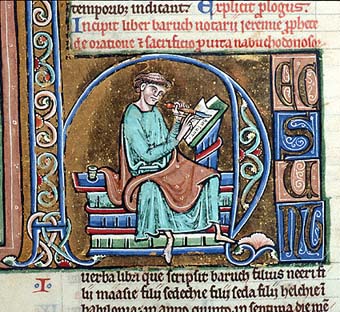 temporib; indicant. Explicit plogus.
Incipit liber baruch notarii jeremie pphete
de oratione & sacrificio p uita nabuchodonosor
H
EC
SU
NT
I
uerba libri que scripsit baruch filius neeri. fi
lii maasie filii sedechie filii seda filii helchie i
babilonia: in anno quinto. in septima die mē